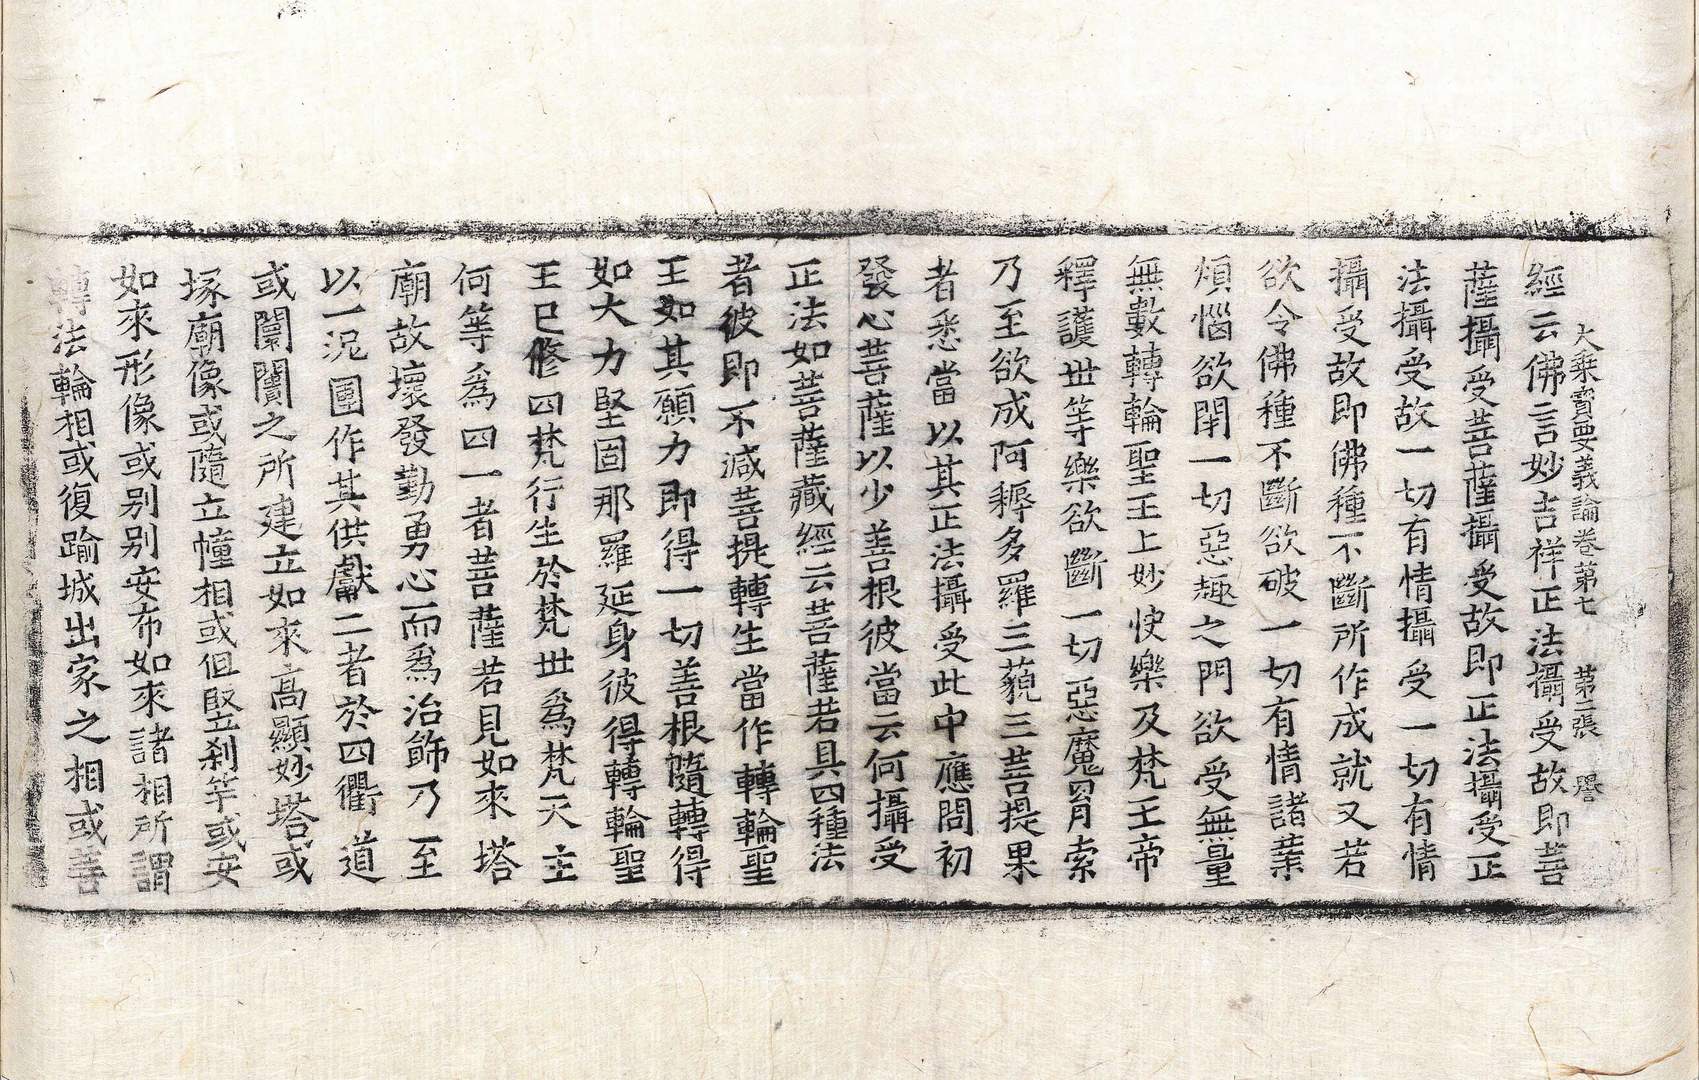 大乗寶要義論卷第七 第二張 譽
經云佛言妙吉祥正法攝受故即菩
薩攝受菩薩攝受故即正法攝受正
法攝受故一切有情攝受一切有情
攝受故即佛種不斷所作成就又若
欲令佛種不斷欲破一切有情諸業
煩惱欲閇一切惡趣之門欲受無量
無數轉輪聖王上妙快樂及梵王帝
釋護世等樂欲斷一切惡魔罥索
乃至欲成阿耨多羅三藐三菩提果
者悉當以其正法攝受此中應問初
發心菩薩以少善根彼當云何攝受
正法如菩薩藏經云菩薩若具四種法
者彼即不減菩提轉生當作轉輪聖
王如其願力即得一切善根隨轉得
如大力堅固那羅延身彼得轉輪聖
王已修四梵行生於梵世爲梵天主
何等爲四一者菩薩若見如來塔
廟故壞發勤勇心而爲治飾乃至
以一泥團作其供獻二者於四衢道
或闤闠之所建立如來高顯妙塔或
塚廟像或隨立幢相或但竪刹竿或安
如來形像或別別安布如來諸相所謂
轉法輪相或復踰城出家之相或菩